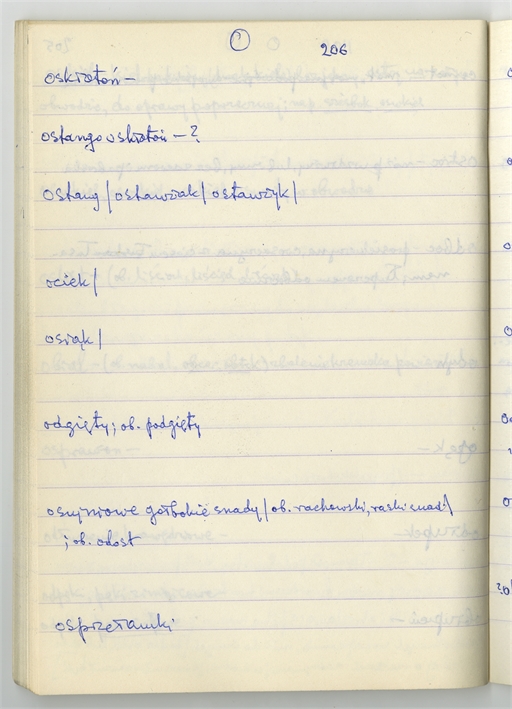 O 206
oskrotoń –
ostangoskrotoń – ?
ostang / ostawziak / ostawzyk /
ociek /
osiąk /
odgięty; ob. podgięty
osyniowe gołbokie snady / ob. rachowski, raski snad /
; ob. odost
osprzetamki